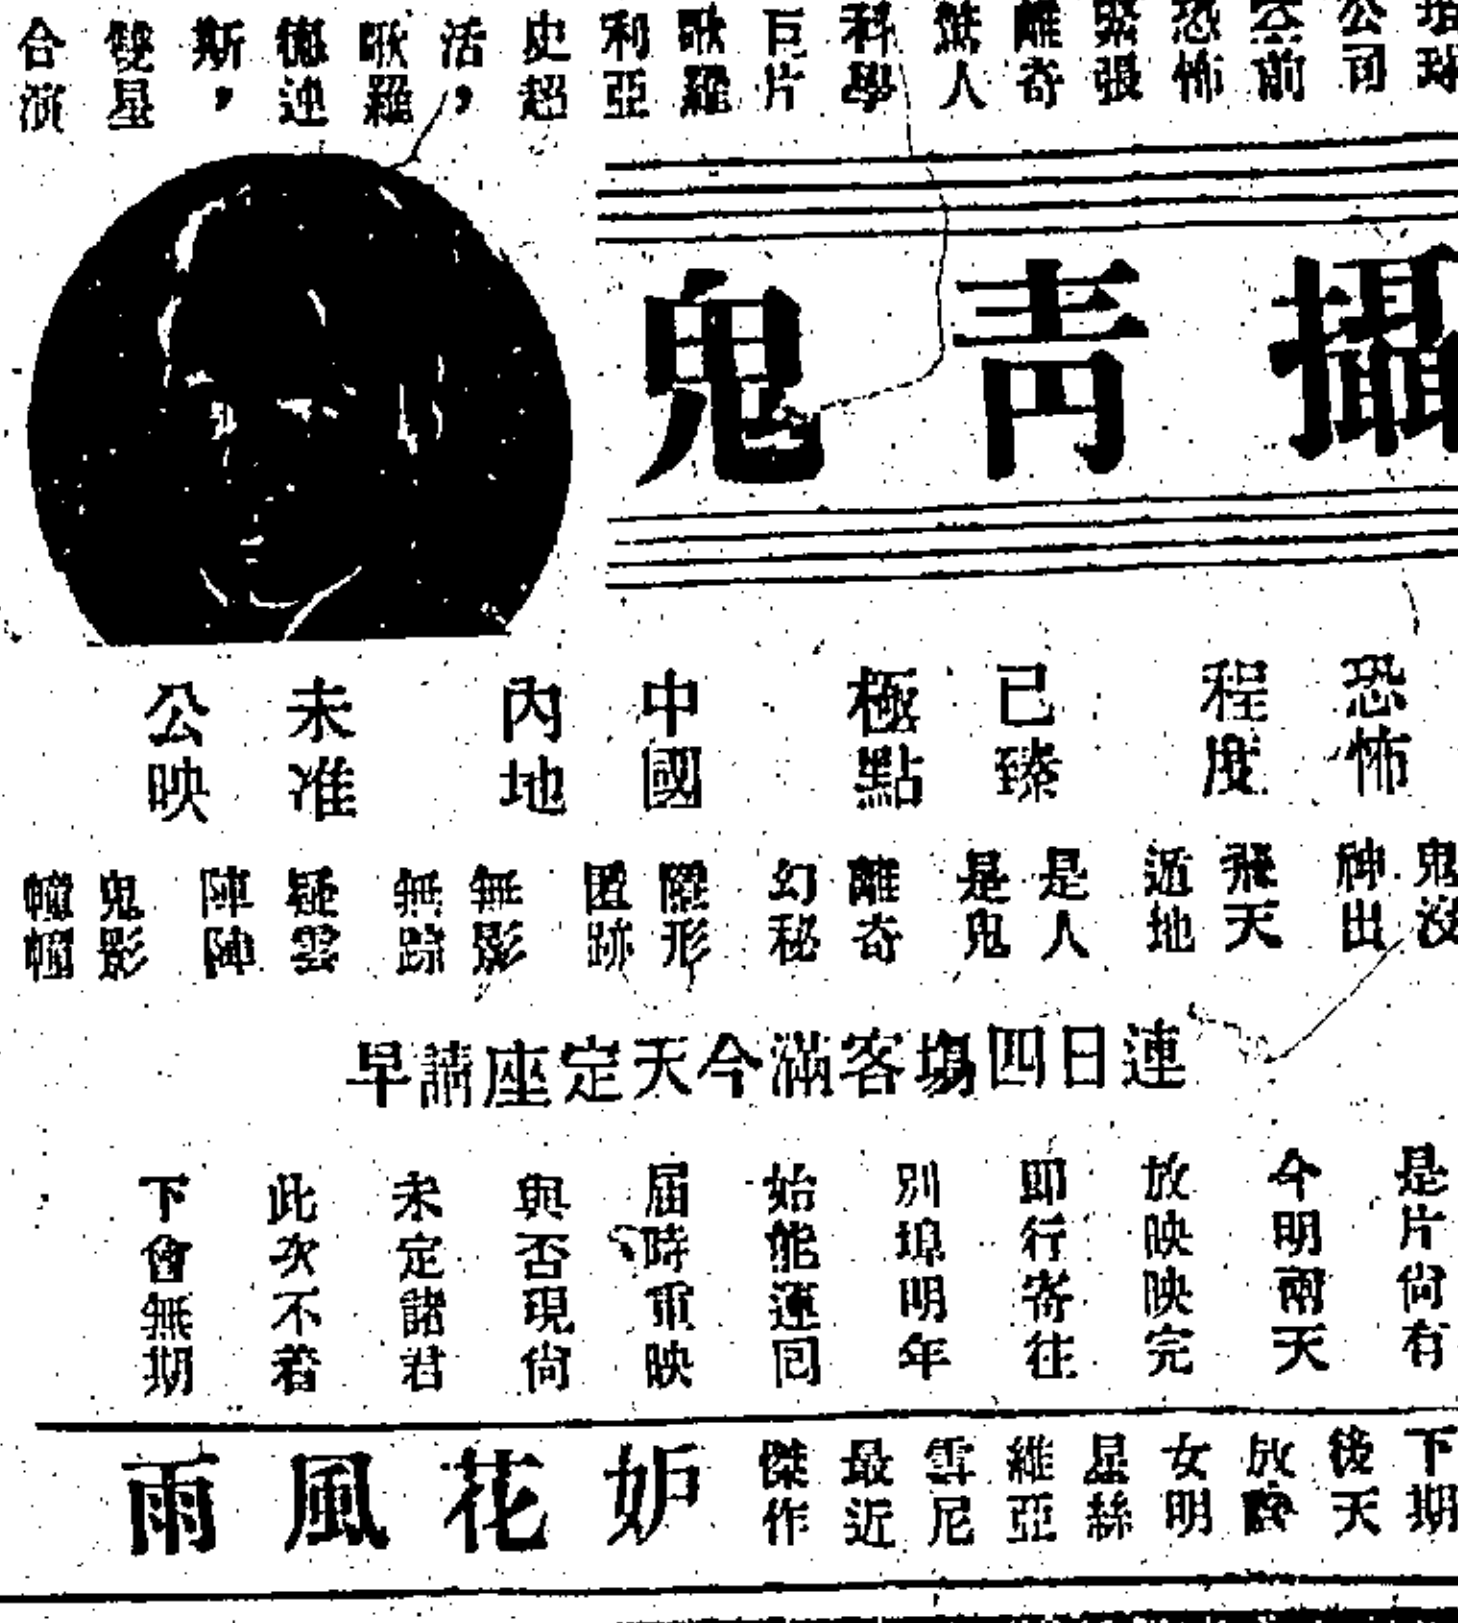 環球公司空前恐怖緊張離奇驚人科學巨片歌羅利亞史超活，歌羅德連斯，雙星合演
攝青鬼
恐怖程度 已臻極點 中國內地 未准公映
鬼沒神出 飛天遁地 是人是鬼 離奇幻秘 隱形匿跡 無影無踪 疑雲陣陣 鬼影幢幢
連日四塲客滿今天定座請早
是片尚有今明兩天放映映完即行寄往別埠明年始能運回屆時重映與否現尚未定諸君此次不看下會無期
下期後天放影女明星絲維亞雪尼最近傑作 妒花風雨